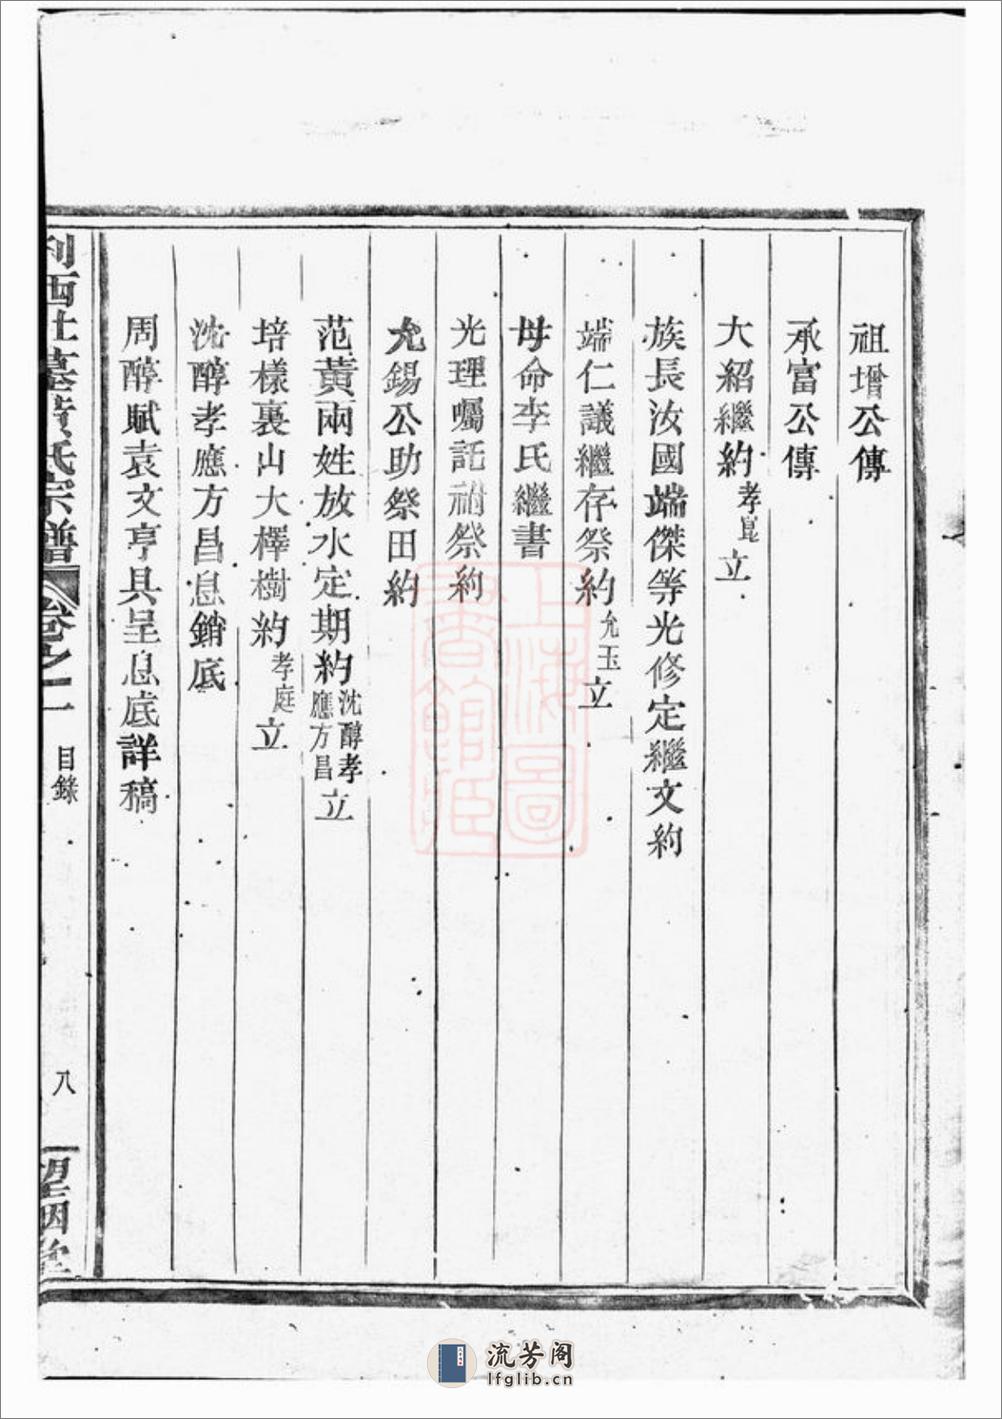 祖增公傳
承富公傳
大紹繼約孝崑立
族長汝國端傑等光修定繼文約
端仁議繼存祭約允玉立
母命李氏繼書
光理囑託祔祭約
允錫公助祭田約
范黃兩姓放水定期約沈醇孝應方昌立
培樣裏山大樟樹約孝庭立
沈醇孝應方昌息銷底
周醇賦袁文亨具呈息底詳稿
宗譜 卷之一 目錄 八
上海圖書館藏
流芳阁
lfglib.cn